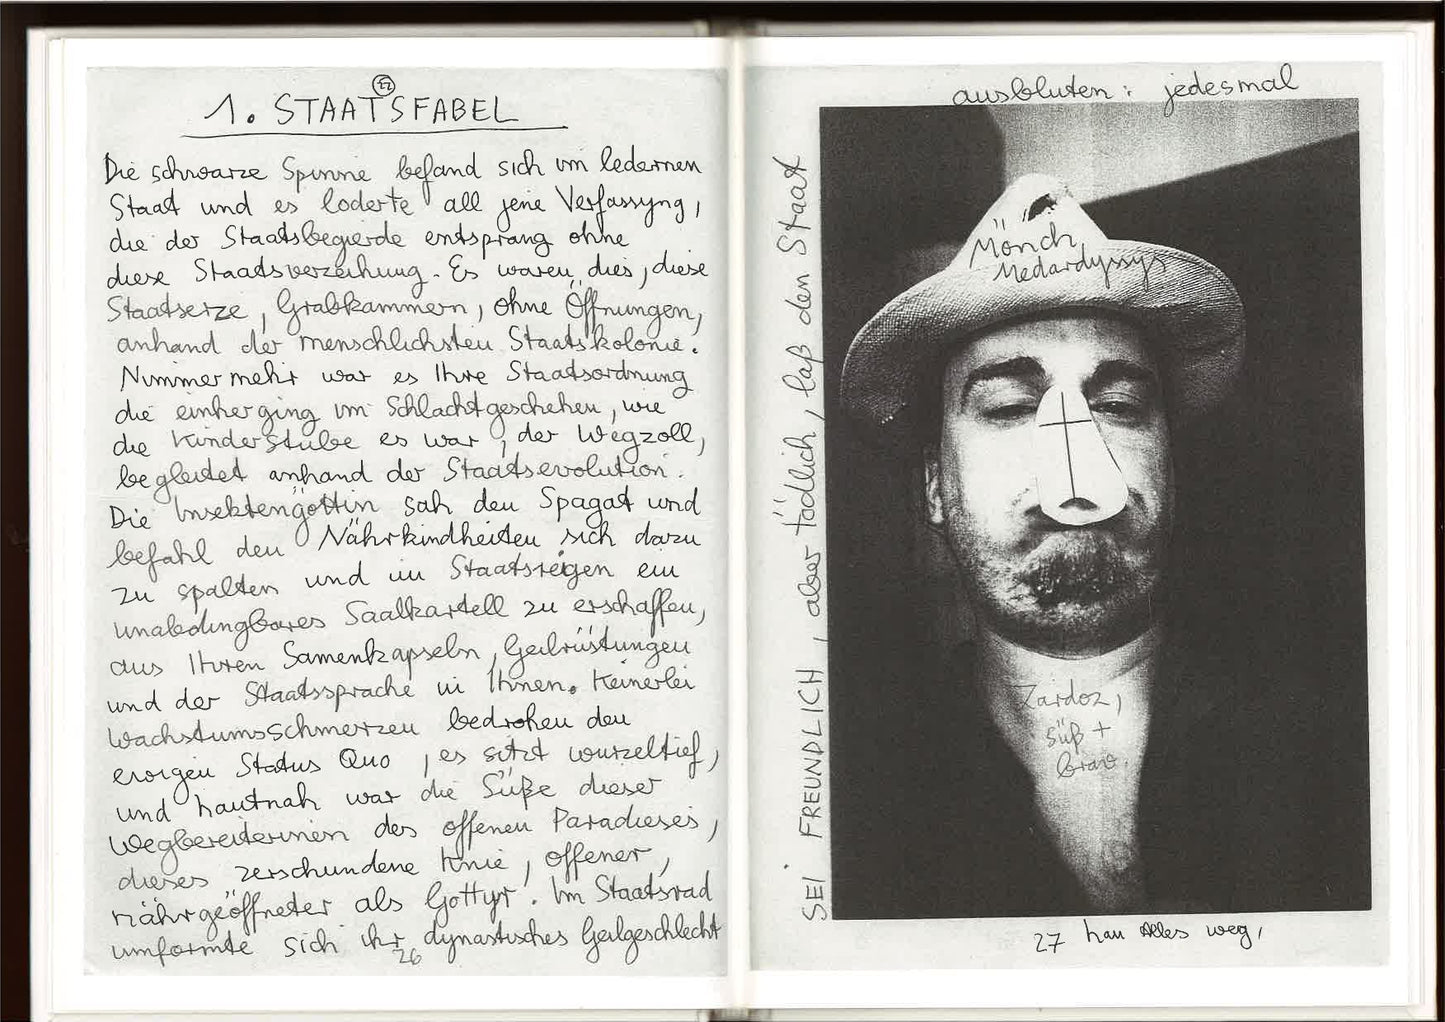 22
1. STAATSFABEL
Die schwarze Spinne befand sich im ledernen
Staat und es loderte all jene Verfassyng,
die der Staatsbegierde entsprang ohne
diese Staatsverzeihung. Es waren dies, diese
Staatserze, Grabkammern, ohne Öffnungen,
anhand der menschlichsten Staatskolonie.
Nimmermehr war es Ihre Staatsordnung
die einherging im Schlachtgeschehen, wie
die Kinderstube es war, der Wegzoll,
begleitet anhand der Staatsevolution.
Die Insektengöttin sah den Spagat und
befahl den Nährkindheiten sich dazu
zu spalten und im Staatsreigen ein
unabdingbares Saalkartell zu erschaffen,
aus Ihren Samenkapseln, Geilrüstungen
und der Staatssprache in Ihnen. Keinerlei
Wachstumsschmerzen bedrohen den
ewigen Status Quo, es sitzt wurzeltief,
und hautnah war die Süße dieser
Wegbereiterinnen des offenen Paradieses,
dieses zerschundene Knie, offener,
nährgeöffneter als Gottyr. Im Staatsrad
umformte sich ihr dynastisches Geilgeschlecht
26
ausbluten: jedesmal
SEI FREUNDLICH, aber tödlich, laß den Staat
Mönch
Medardyssys
Zardoz,
süß +
brav.
27 hau Alles weg,